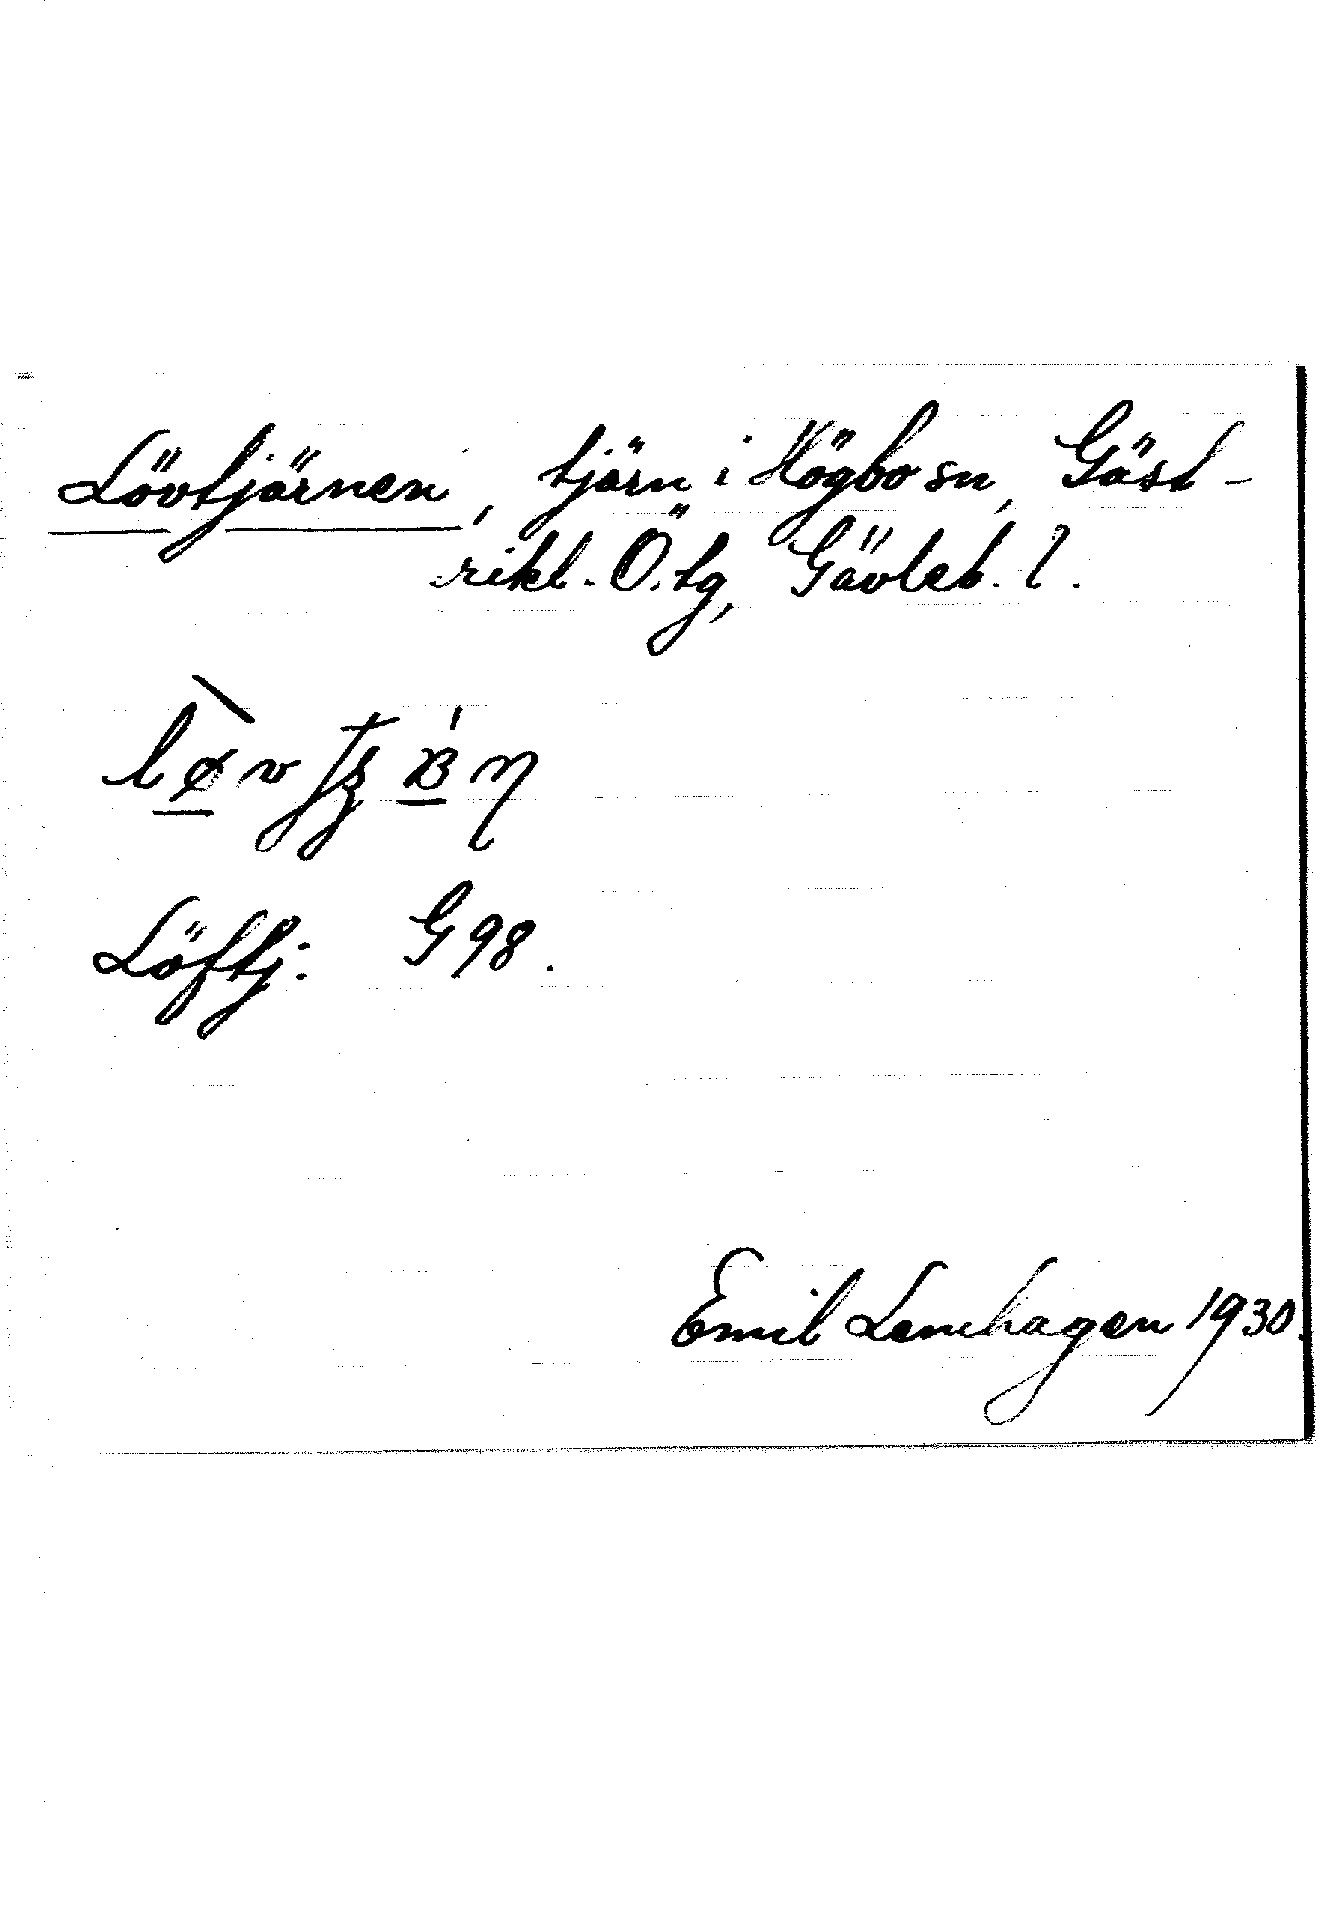 Lövtjärnen, tjärn i Högbo sn, Gäst-
rikl. Ö. tg, Gävleb. l.
Löftj. G 98.
Emil Lenehagen 1930.